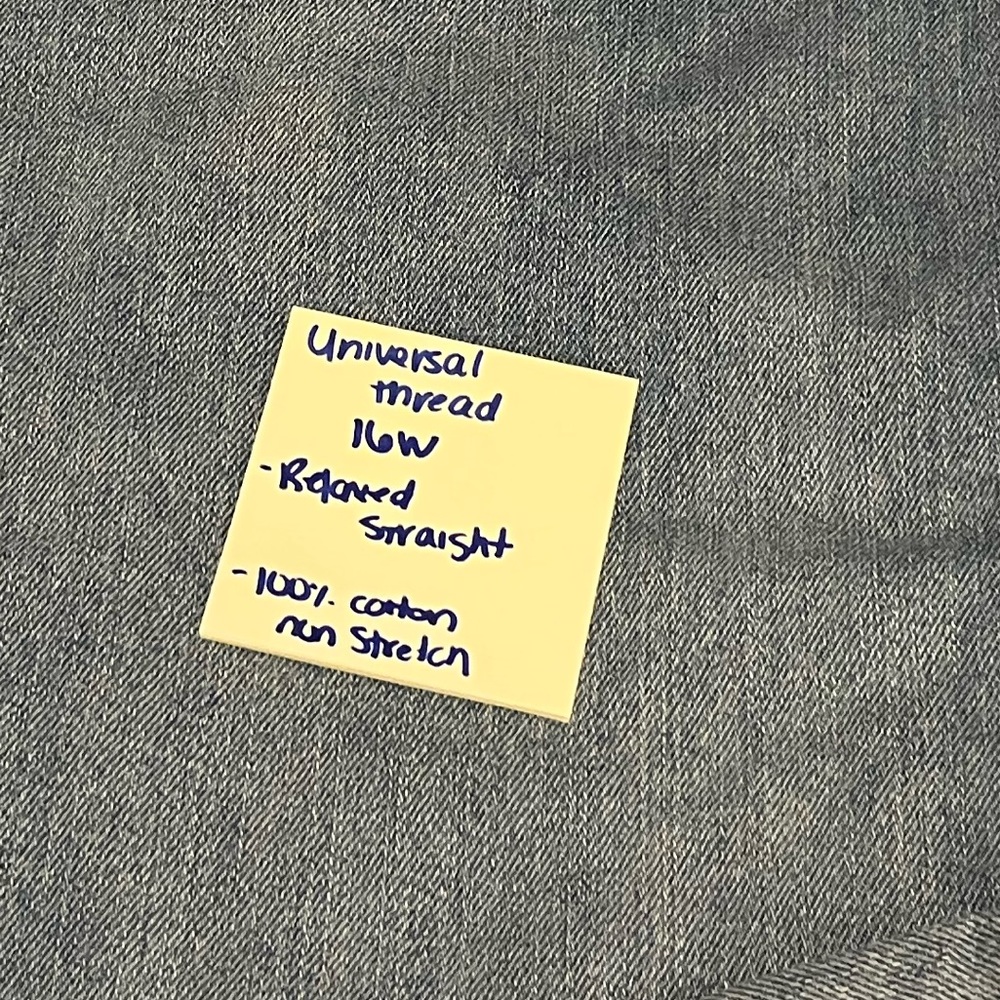 Universal
thread
16W
- Relaxed
Straight
- 100% cotton
non Stretch